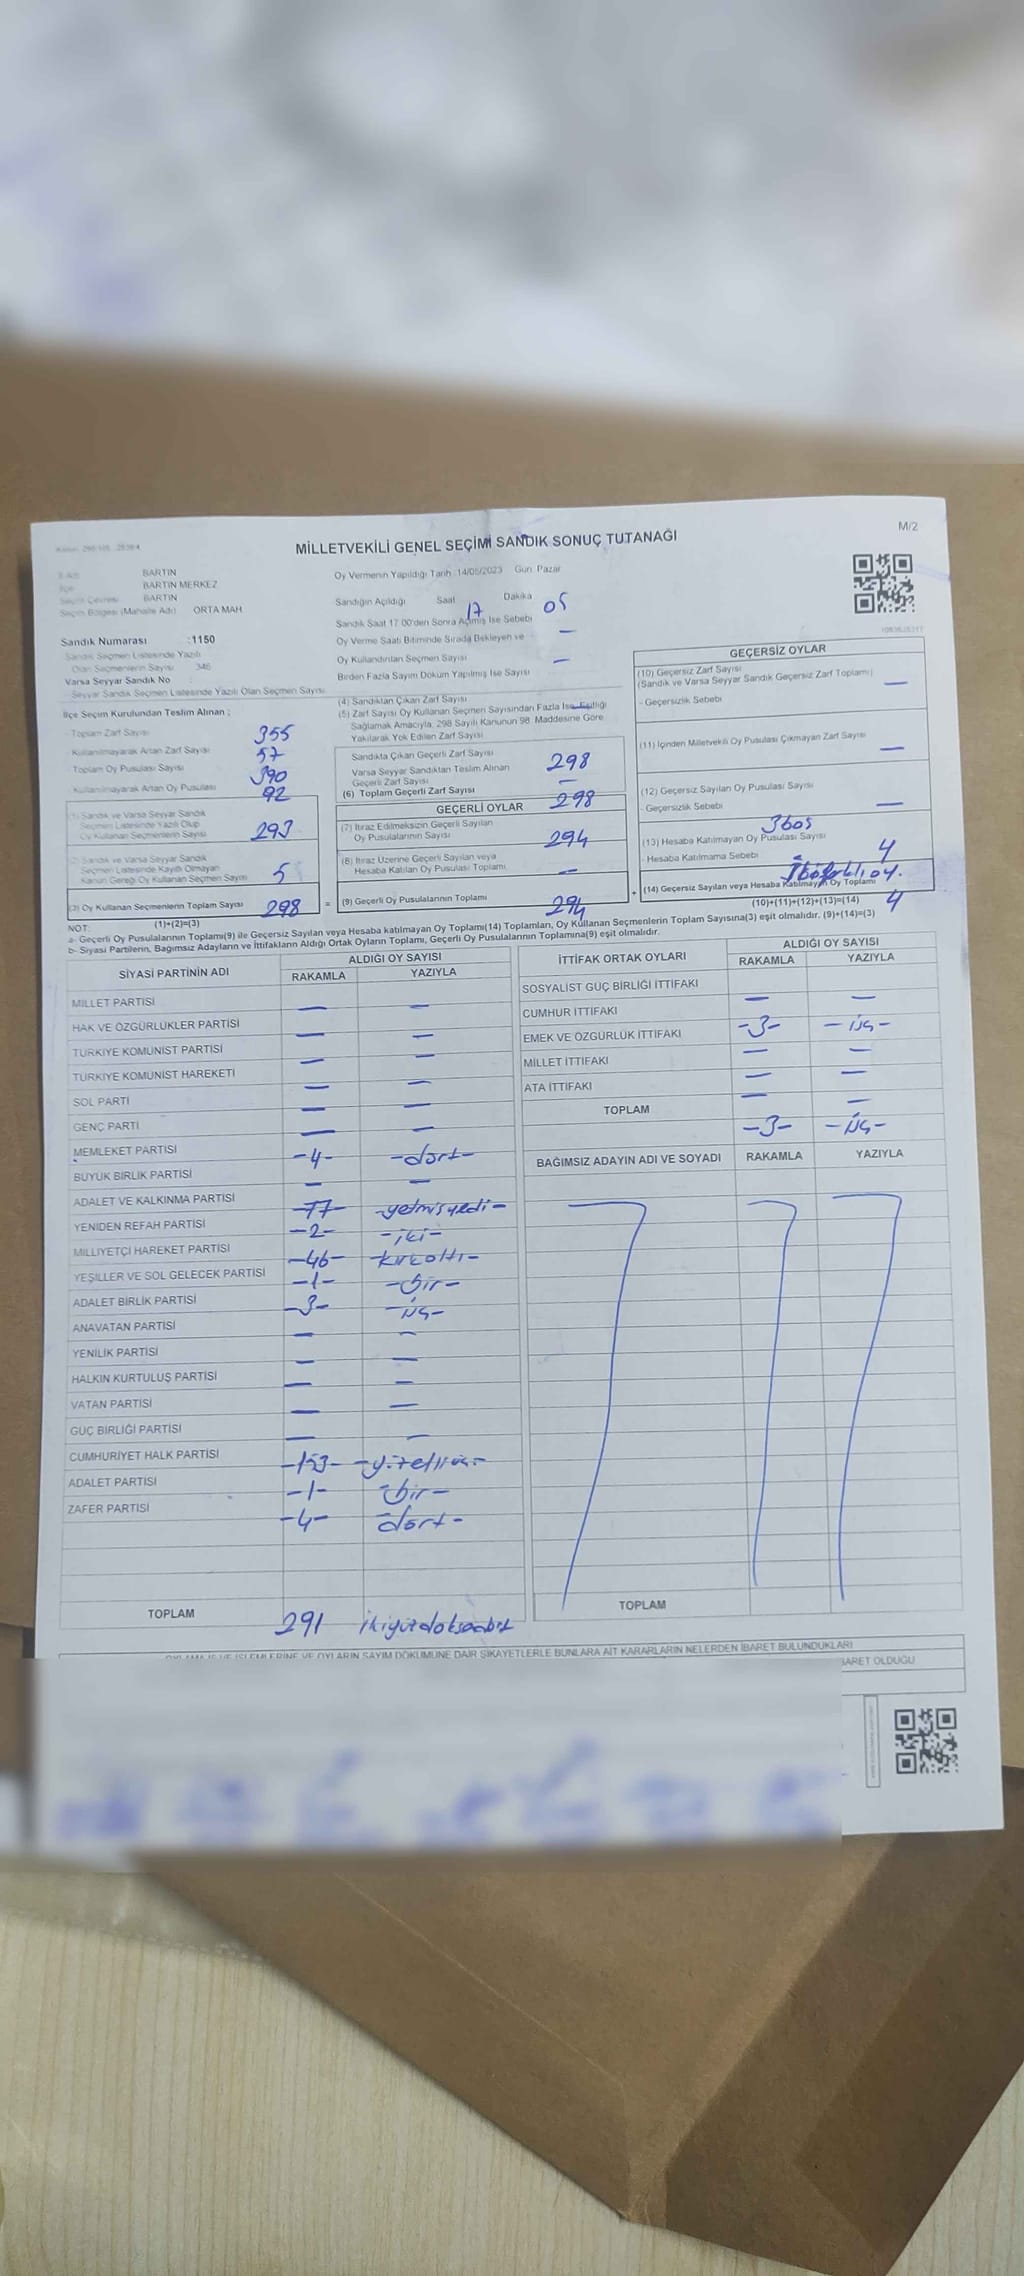 M/2
MİLLETVEKİLİ GENEL SEÇİMİ SANDIK SONUÇ TUTANAĞI
BARTIN
BARTIN MERKEZ
BARTIN
Seçim Bölgesi (Mahalle Adı) ORTA MAH
Sandık Numarası :1150
Sandık Seçmen Listesinde Yazılı
Olan Seçmenlerin Sayısı 346
Varsa Seyyar Sandık No
Seyyar Sandık Seçmen Listesinde Yazılı Olan Seçmen Sayısı
İlçe Seçim Kurulundan Teslim Alınan ;
Toplam Zarf Sayısı 355
Kullanılmayarak Artan Zarf Sayısı 57
Toplam Oy Pusulası Sayısı 390
Kullanılmayarak Artan Oy Pusulası 92
(1) Sandık ve Varsa Seyyar Sandık
Seçmen Listesinde Yazılı Olup
Oy Kullanan Seçmenlerin Sayısı 293
(2) Sandık ve Varsa Seyyar Sandık
Seçmen Listesinde Kayıtlı Olmayan
Kanun Gereği Oy Kullanan Seçmen Sayısı 5
(3) Oy Kullanan Seçmenlerin Toplam Sayısı 298 =
(1)+(2)=(3)
Oy Vermenin Yapıldığı Tarih :14/05/2023 Gün: Pazar
Sandığın Açıldığı Saat 17 Dakika 05
Sandık Saat 17.00'den Sonra Açılmış İse Sebebi
Oy Verme Saati Bitiminde Sırada Bekleyen ve —
Oy Kullandırılan Seçmen Sayısı
Birden Fazla Sayım Döküm Yapılmış İse Sayısı —
(4) Sandıktan Çıkan Zarf Sayısı
(5) Zarf Sayısı Oy Kullanan Seçmen Sayısından Fazla İse, Eşitliği
Sağlamak Amacıyla, 298 Sayılı Kanunun 98. Maddesine Göre
Yakılarak Yok Edilen Zarf Sayısı
Sandıkta Çıkan Geçerli Zarf Sayısı 298
Varsa Seyyar Sandıktan Teslim Alınan
Geçerli Zarf Sayısı —
(6) Toplam Geçerli Zarf Sayısı 298
GEÇERLİ OYLAR
(7) İtiraz Edilmeksizin Geçerli Sayılan
Oy Pusulalarının Sayısı 294
(8) İtiraz Üzerine Geçerli Sayılan veya
Hesaba Katılan Oy Pusulası Toplamı —
(9) Geçerli Oy Pusulalarının Toplamı 294 +
GEÇERSİZ OYLAR
(10) Geçersiz Zarf Sayısı
(Sandık ve Varsa Seyyar Sandık Geçersiz Zarf Toplamı) —
- Geçersizlik Sebebi
(11) İçinden Milletvekili Oy Pusulası Çıkmayan Zarf Sayısı —
(12) Geçersiz Sayılan Oy Pusulası Sayısı
- Geçersizlik Sebebi —
3 boş
(13) Hesaba Katılmayan Oy Pusulası Sayısı 4
- Hesaba Katılmama Sebebi
(14) Geçersiz Sayılan veya Hesaba Katılmayan Oy Toplamı
(10)+(11)+(12)+(13)=(14) 4
NOT:
a- Geçerli Oy Pusulalarının Toplamı(9) ile Geçersiz Sayılan veya Hesaba katılmayan Oy Toplamı(14) Toplamları, Oy Kullanan Seçmenlerin Toplam Sayısına(3) eşit olmalıdır. (9)+(14)=(3)
b- Siyasi Partilerin, Bağımsız Adayların ve İttifakların Aldığı Ortak Oyların Toplamı, Geçerli Oy Pusulalarının Toplamına(9) eşit olmalıdır.
SİYASİ PARTİNİN ADI ALDIĞI OY SAYISI
RAKAMLA YAZIYLA
MİLLET PARTİSİ — —
HAK VE ÖZGÜRLÜKLER PARTİSİ — —
TÜRKİYE KOMÜNİST PARTİSİ — —
TÜRKİYE KOMÜNİST HAREKETİ — —
SOL PARTİ — —
GENÇ PARTİ — —
MEMLEKET PARTİSİ -4- -dört-
BÜYÜK BİRLİK PARTİSİ — —
ADALET VE KALKINMA PARTİSİ -77- -yetmişyedi-
YENİDEN REFAH PARTİSİ -2- -iki-
MİLLİYETÇİ HAREKET PARTİSİ -46- -kırkaltı-
YEŞİLLER VE SOL GELECEK PARTİSİ -1- -bir-
ADALET BİRLİK PARTİSİ -3- -üç-
ANAVATAN PARTİSİ — —
YENİLİK PARTİSİ — —
HALKIN KURTULUŞ PARTİSİ — —
VATAN PARTİSİ — —
GÜÇ BİRLİĞİ PARTİSİ — —
CUMHURİYET HALK PARTİSİ -153- -yüzelliüç-
ADALET PARTİSİ -1- -bir-
ZAFER PARTİSİ -4- -dört-
TOPLAM 291 ikiyüzdoksanbir
İTTİFAK ORTAK OYLARI ALDIĞI OY SAYISI
RAKAMLA YAZIYLA
SOSYALİST GÜÇ BİRLİĞİ İTTİFAKI — —
CUMHUR İTTİFAKI -3- -üç-
EMEK VE ÖZGÜRLÜK İTTİFAKI — —
MİLLET İTTİFAKI — —
ATA İTTİFAKI — —
TOPLAM -3- -üç-
BAĞIMSIZ ADAYIN ADI VE SOYADI RAKAMLA YAZIYLA
TOPLAM
OYLAMA İŞ VE İŞLEMLERİNE VE OYLARIN SAYIM DÖKÜMÜNE DAİR ŞİKAYETLERLE BUNLARA AİT KARARLARIN NELERDEN İBARET BULUNDUKLARI
İBARET OLDUĞU